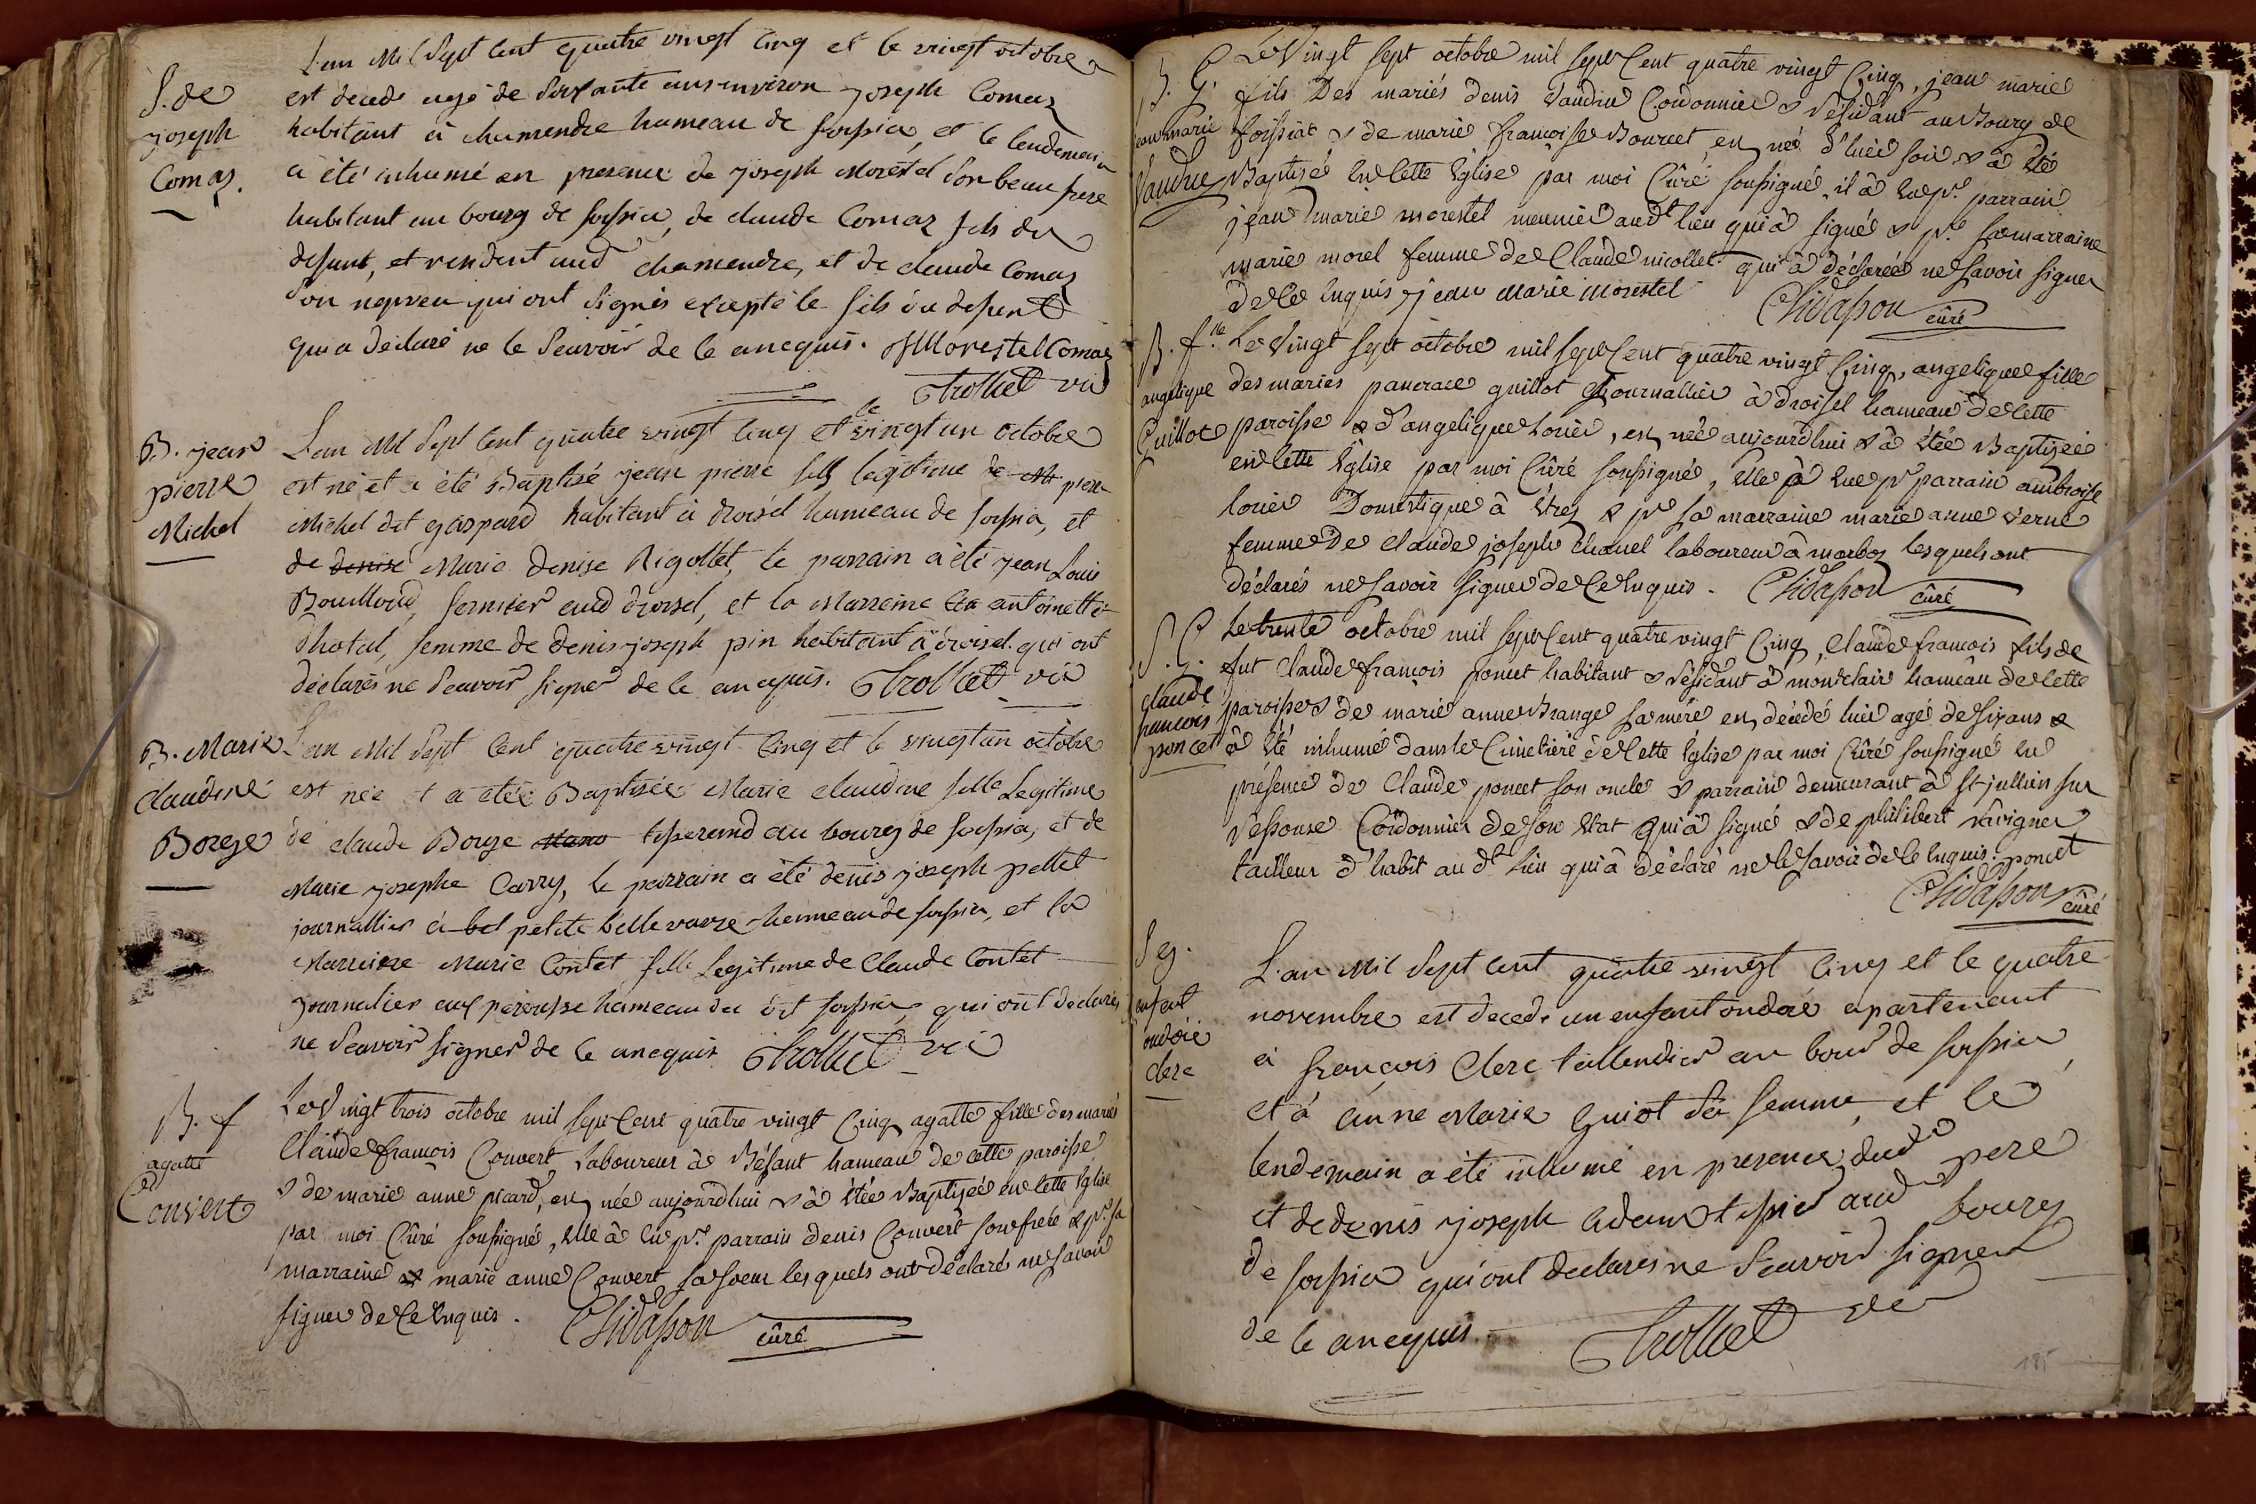 S. de
joseph
Comaz.
L'an Mil Sept Cent quatre vingt Cinq et le vingt octobre
est decedé agé de Soixante ans environ joseph Comaz
habitant à chamendre hameau de foissia, et le lendemain
a été inhumé en presence de joseph Morestel Son beau frere
habitant au bourg de foissia, de claude Comaz fils du
defunt, et rendent aud chamendre, et de claude Comaz
Son nepveu qui ont Signés excepté le fils du defunt
qui a declaré ne le Scavoir de ce ancquis. JMorestel Comaz
Trolliet vic
B. jean
pierre
Michel
L'an Mil Sept Cent quatre vingt Cinq et le vingt un octobre
est né et a été Baptisé jean pierre fils legitime de pierre
Michel dit gaspard habitant à droisel hameau de foissia, et
de denise Marie denise Rigollet, le parrain a été jean Louis
Bouilloud, fermier aud droisel, et la Marreine antoinette
Chatal, femme de denis-joseph pin habitant à droisel qui ont
declarés ne Scavoir Signer de ce ancquis. Trolliet vic
B. Marie
Claudine
Borge
L'an Mil Sept Cent quatre vingt Cinq et le vingt un octobre
est née et a étée Baptisée Marie claudine fille Legitime
de claude Borge tisserand au bourg de foissia, et de
Marie josephe Carry, le parrain a été denis joseph pellet
journallier à bel petite bellevavre hameau de foissia, et la
Marreine Marie Contet fille Legitime de Claude Contet
journalier aux perousse hameau du dit foissia, qui ont declarés
ne Scavoir Signer de ce ancquis Trolliet vic
B. f
agatte
Convert
Le Vingt trois octobre mil sept Cent quatre vingt Cinq agatte fille des mariés
Claude françois Convert Laboureur à Bésant hameau de cette paroisse
& de marie anne picard, est née aujourd'hui & à étée Baptizée en cette Eglise
par moi Curé soussigné, Elle à Eu pr. parrain denis Convert son frere & pr. sa
marraine & marie anne Convert sa soeur lesquels ont déclaré ne savoir
signer de ce Enquis. Chidasson curé
B. G.
jean marie
Vaudrie
Le Vingt sept octobre mil sept Cent quatre vingt Cinq, jean marie
fils Des mariés denis Vaudrie Cordonnier & résidant au Bourg de
foissiat & de marie françoise Bourcet, est né d'hier soir & à été
Baptisé en cette Eglise par moi Curé soussigné, il à Eu pr. parrain
jean marie morestel meunier aud. lieu qui à signé & pr. sa marraine
marie morel femme de Claude nicollet qui à déclarée ne savoir signer
de ce Enquis jean marie morestel Chidasson curé
B. f.lle
angelique
Guillot
Le Vingt sept octobre mil sept Cent quatre vingt Cinq, angelique fille
des mariés pancrace guillot Journallier à droisel hameau de cette
paroisse & d'angelique Louier, est née aujourd'hui & à étée Baptizée
en cette Eglise par moi Curé soussigné, elle à Eue pr parrain ambroise
louier Domestique à Etrez & pr sa marraine marie anne verne
femme de Claude joseph chanel laboureur à marboz lesquels ont
déclarés ne savoir signer de ce Enquis. Chidasson curé
S. G.
claude
francois
poncet
Le trente octobre mil sept Cent quatre vingt Cinq, Claude francois fils de
fut Claude francois poncet habitant & résidant à montclair hameau de cette
paroisse & de marie anne Brange sa mére est décédé hier agé de six ans &
à été inhumé dans le Cimetiére de cette Eglise par moi Curé soussigné en
présence de Claude poncet son oncle & parrain demeurant à st jullien sur
ressouse Cordonnier de son Etat qui à signé & de philibert ravigner
tailleur d'habit au dt. Lieu qui à déclaré ne le savoir de ce Enquis. poncet
Chidasson curé
Seg.
enfant
ondoié
clerc
L'an Mil Sept Cent quatre vingt Cinq et le quatre
novembre est decedé un enfant ondoié apartenant
à françois Clerc taillendier au bour de foissia,
et à anne Marie Guiot Sa femme, et le
lendemain a été inhumé en presence dud pere
et de denis joseph adam tissier aud bourg
de foissia qui ont declarés ne Scavoir Signer
de ce ancquis. Trolliet vic
185